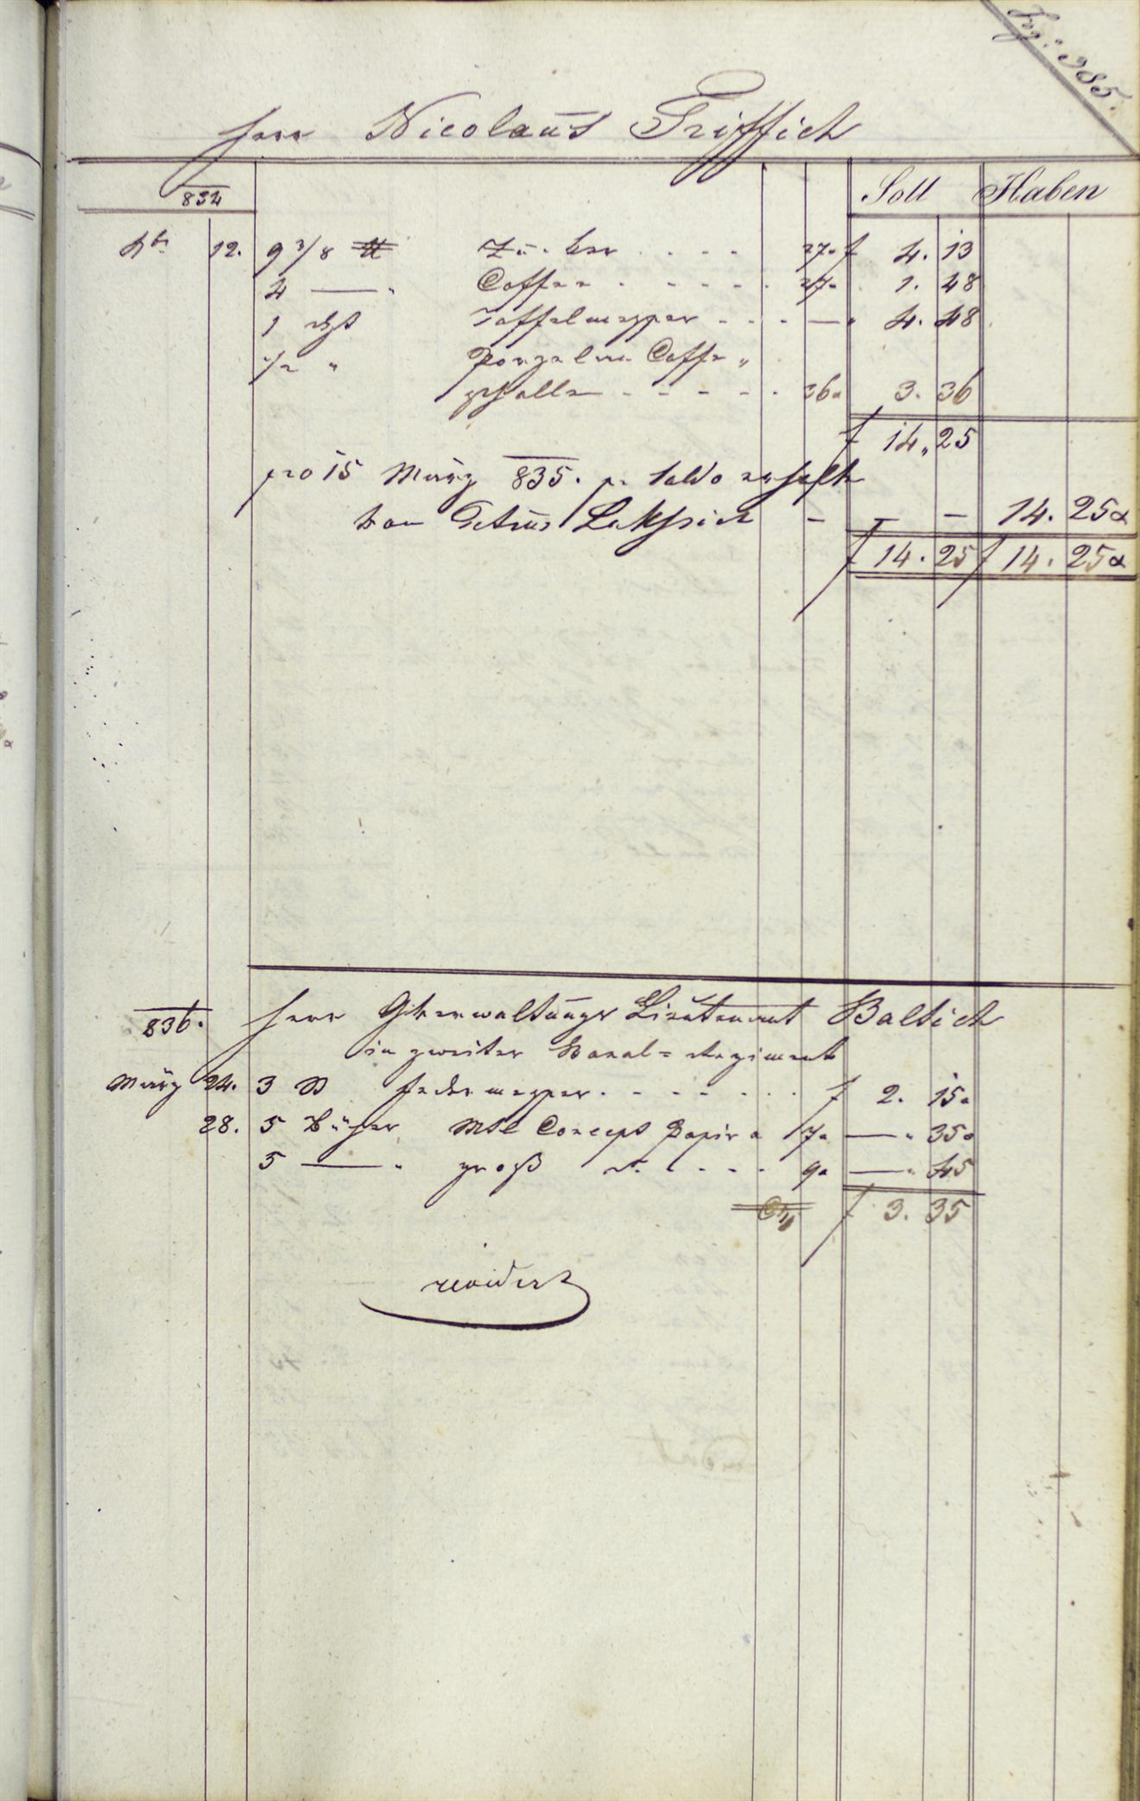 Pag: 985.
Herr Nicolaus Triffich
Soll Haben
834
12. 9 3/8 ℔ Zucker . . . . 27 f 4. 13
4 — " Caffee . . . . . 27 1. 48
1 Taffelmesser - - - — 4. 48
1/2 " Porzelan Caffe "
schalle - - - - - 36 3. 36
f 14. 25
pro 15 März 835. pr Saldo erhalte
von Petrus - - - 14. 25
f 14. 25 f 14. 25
836. Herr Verwaltungs Lieutenant Baltich
in zweiter Banal = Regiment
März 24. 3 Federmesser . - - - - . . f 2. 15
28. 5 Bücher Concept Papir a 7 — " 35
5 — " groß . . - - - 9 — " 45
f 3. 35
revidert